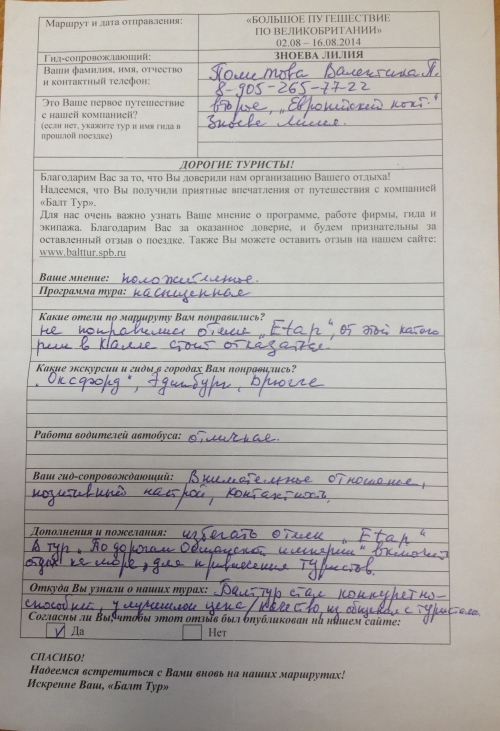 Маршрут и дата отправления:
«БОЛЬШОЕ ПУТЕШЕСТВИЕ
ПО ВЕЛИКОБРИТАНИИ»
02.08 – 16.08.2014
Гид-сопровождающий:
ЗНОЕВА ЛИЛИЯ
Ваши фамилия, имя, отчество
и контактный телефон:
Валентина П.
8-905-265-77-22
Это Ваше первое путешествие
с нашей компанией?
(если нет, укажите тур и имя гида в
прошлой поездке)
второе, „Европейский
Зноева Лилия.
ДОРОГИЕ ТУРИСТЫ!
Благодарим Вас за то, что Вы доверили нам организацию Вашего отдыха!
Надеемся, что Вы получили приятные впечатления от путешествия с компанией
«Балт Тур».
Для нас очень важно узнать Ваше мнение о программе, работе фирмы, гида и
экипажа. Благодарим Вас за оказанное доверие, и будем признательны за
оставленный отзыв о поездке. Также Вы можете оставить отзыв на нашем сайте:
www.balttur.spb.ru
Ваше мнение: положительное.
Программа тура: насыщенная
Какие отели по маршруту Вам понравились?
не понравились отели „Etap", от этой катего
рии в Калле стоит отказаться.
Какие экскурсии и гиды в городах Вам понравились?
„Оксфорд", Эдинбург, Брюгге
Работа водителей автобуса: отличная.
Ваш гид-сопровождающий: Внимательное отношение,
позитивный настрой, контактность,
Дополнения и пожелания: избегать отели „Etap"
В тур „По дорогам Османской империи" включить
отдых на море, для привлечения туристов.
Откуда Вы узнали о наших турах: Балттур стал конкурентно-
способнее, цена/качество, из общения с туристами.
Согласны ли Вы, чтобы этот отзыв был опубликован на нашем сайте:
Да
Нет
СПАСИБО!
Надеемся встретиться с Вами вновь на наших маршрутах!
Искренне Ваш, «Балт Тур»